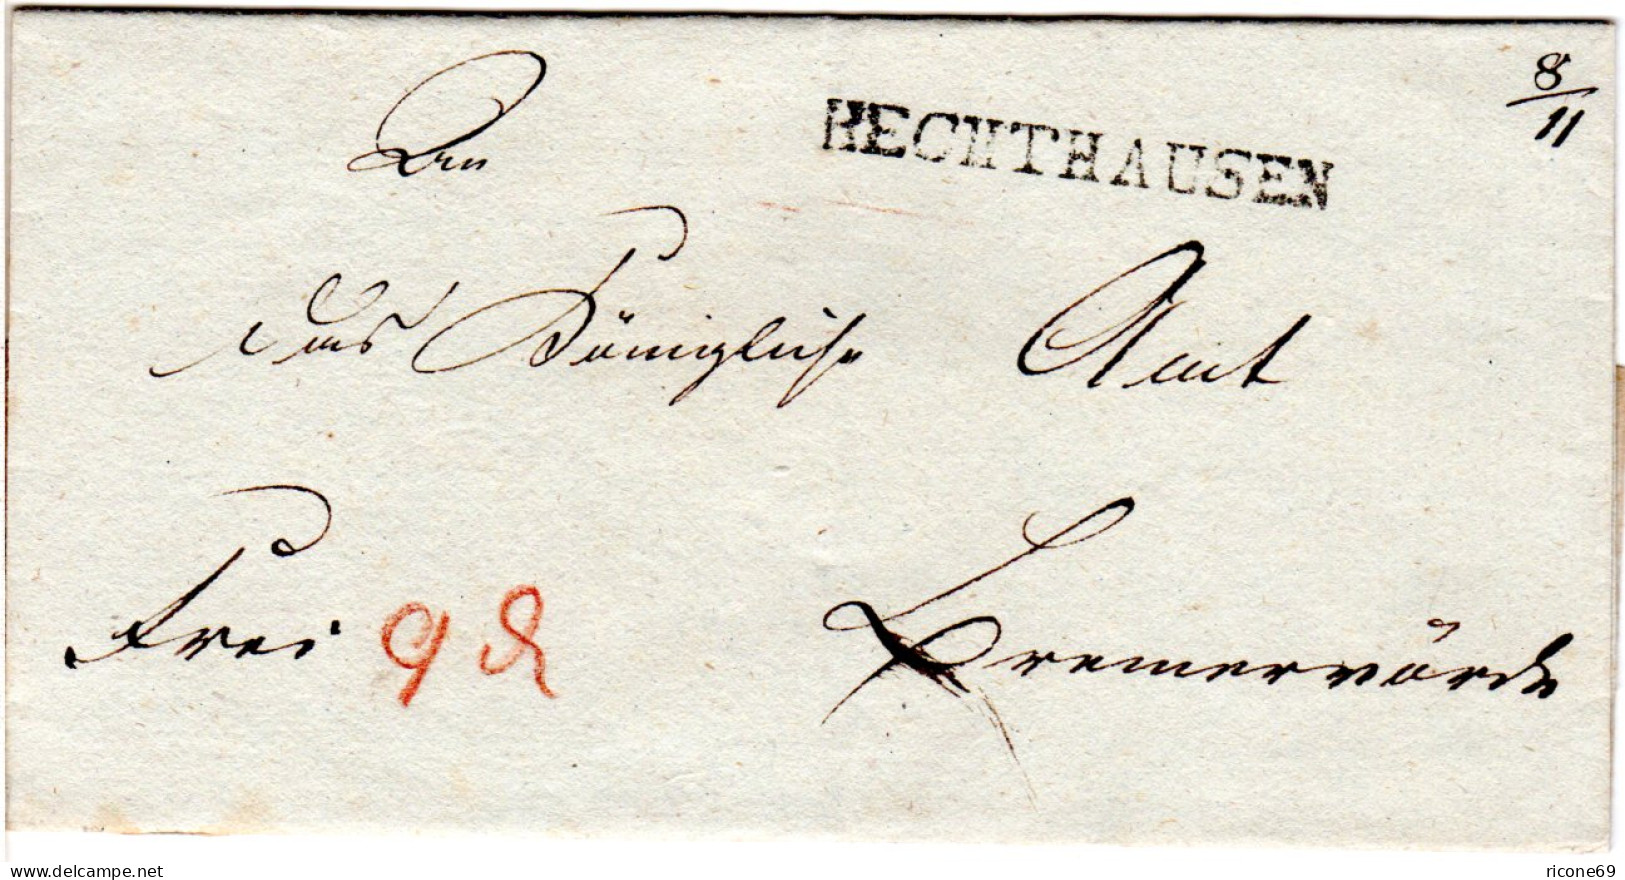 HECHTHAUSEN
8/11
An
das Königliche Amt
Frei 9 ₰
Bremervörde
www.delcampe.net
ricone69